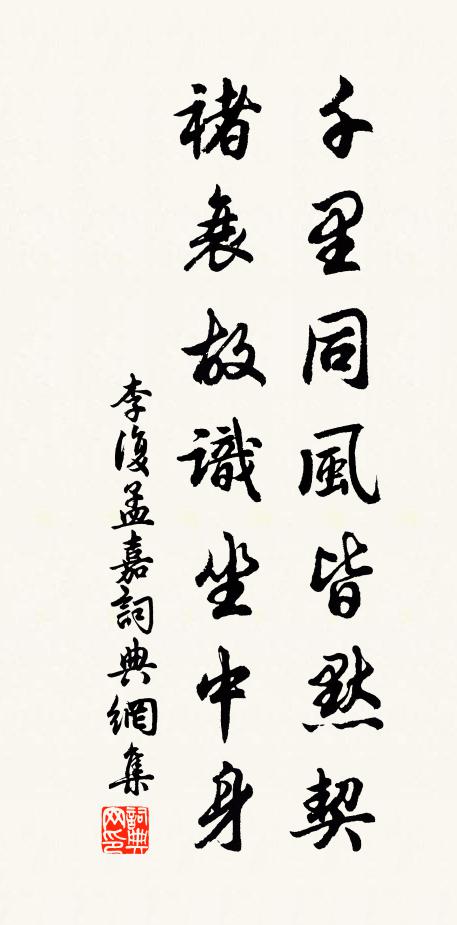 千里同風皆默契
褚裒故識坐中身
李復孟嘉詞典網集
詞典網印